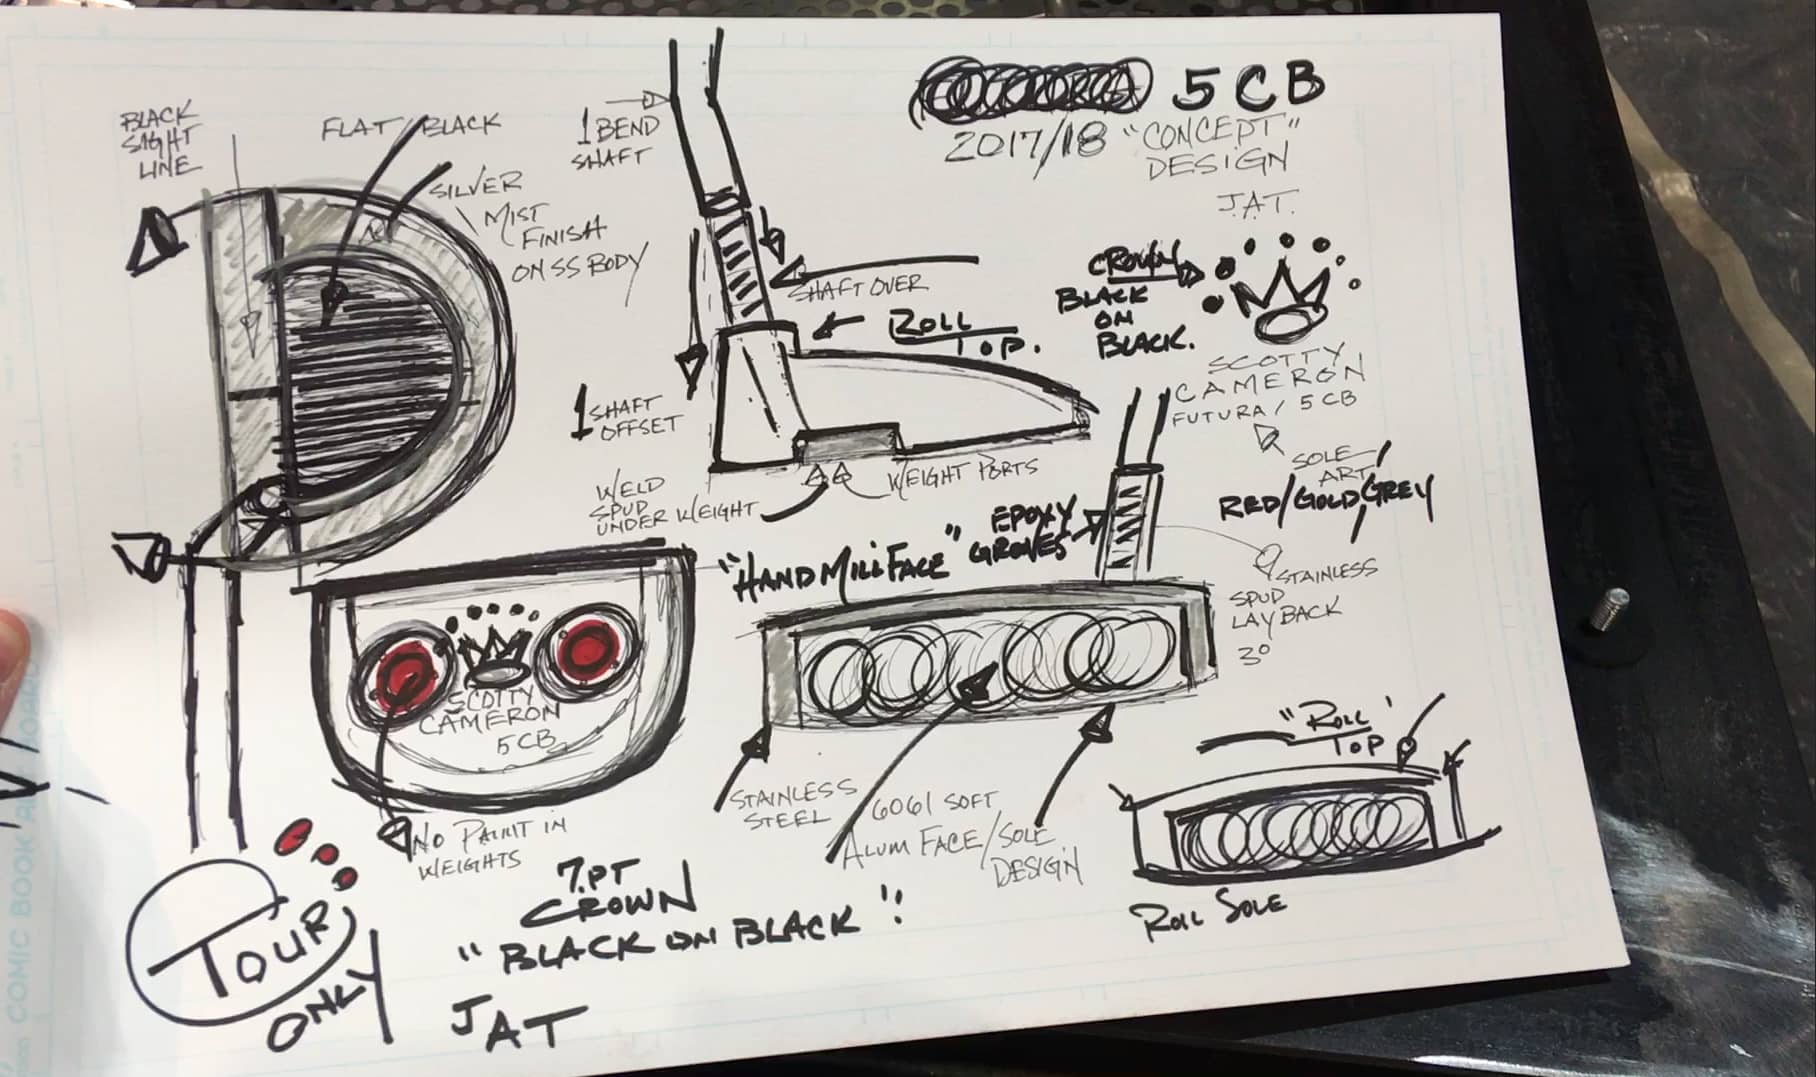 5CB
2017/18 "CONCEPT"
DESIGN
J.A.T.
BLACK
SIGHT
LINE
FLAT/BLACK
SILVER
MIST
FINISH
ON SS BODY
1 BEND
SHAFT
SHAFT OVER
ROLL
TOP.
1 SHAFT
OFFSET
WELD
SPUD
UNDER WEIGHT
WEIGHT PORTS
CROWN
BLACK
ON
BLACK.
SCOTTY
CAMERON
FUTURA / 5CB
SOLE
ART/
RED/GOLD/GREY
"HAND MILL FACE"
EPOXY
GROVES
STAINLESS
SPUD
LAYBACK
3°
SCOTTY
CAMERON
5CB
NO PAINT IN
WEIGHTS
STAINLESS
STEEL
6061 SOFT
ALUM FACE/SOLE
DESIGN
"ROLL"
TOP
ROLL SOLE
7.PT
CROWN
"BLACK ON BLACK"!
JAT
TOUR
ONLY
COMIC BOOK